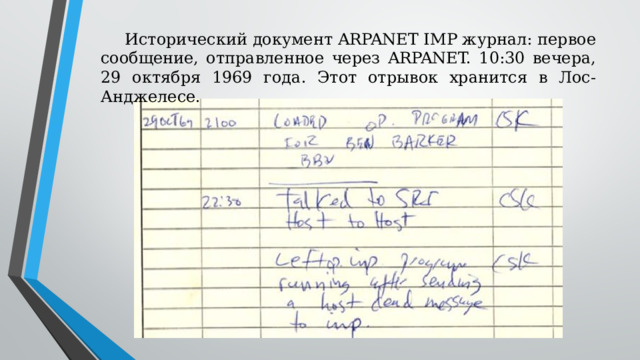 Исторический документ ARPANET IMP журнал: первое
сообщение, отправленное через ARPANET. 10:30 вечера,
29 октября 1969 года. Этот отрывок хранится в Лос-
Анджелесе.
29OCT69 2100 LOADED OP. PROGRAM CSK
FOR BEN BARKER
BBN
22:30 Talked to SRI CSK
Host to Host
Left op. imp program CSK
running after sending
a host dead message
to imp.